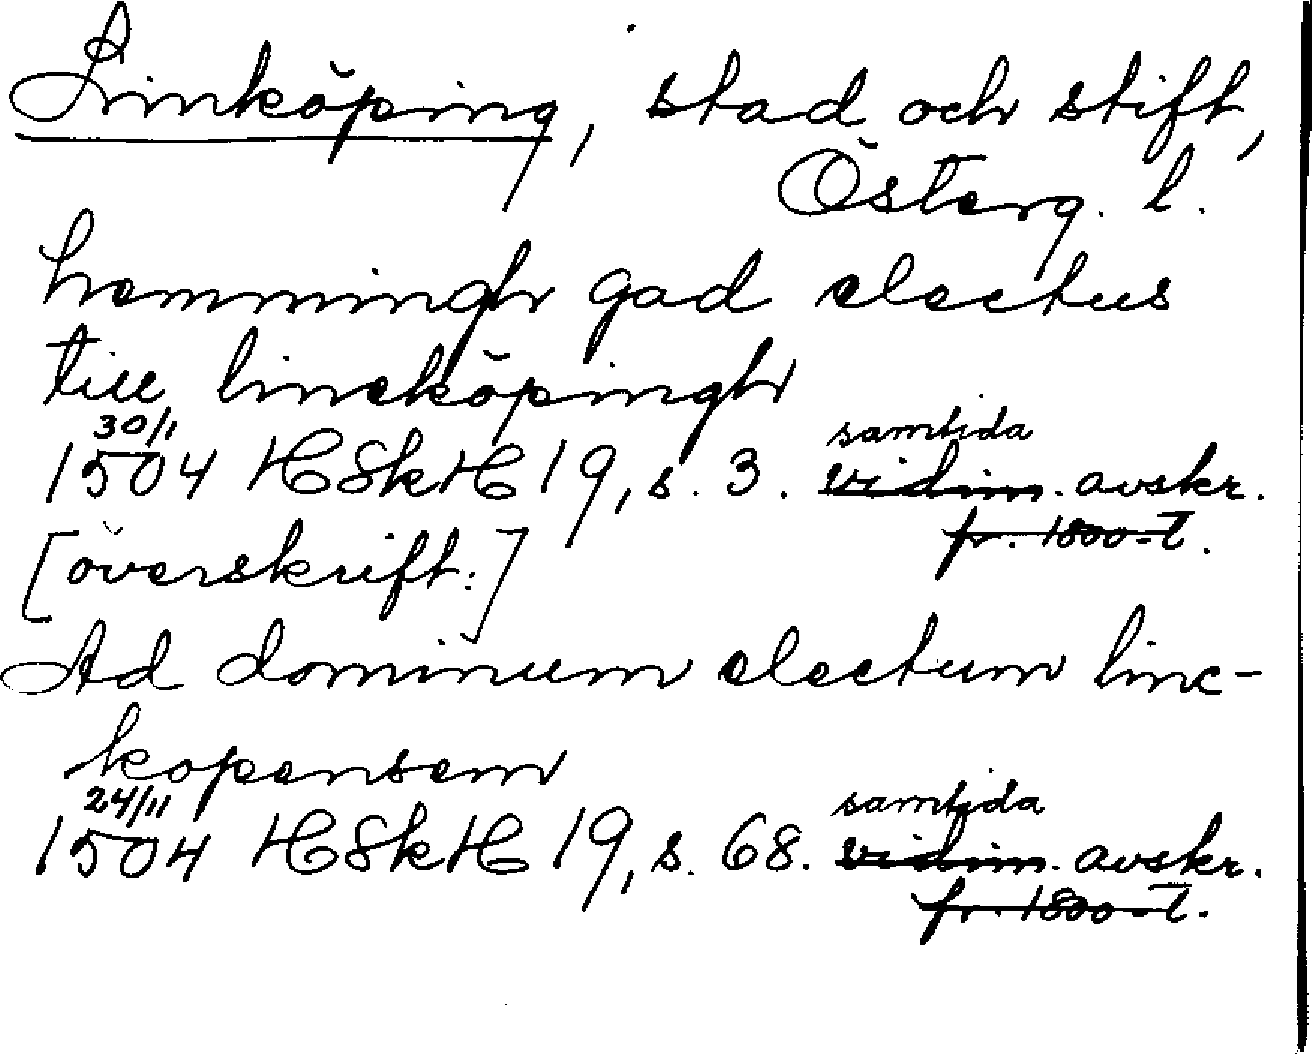 Linköping, stad och stift,
Österg. l.
hemmingh gad electus
till lincköpingh
30/1
1504 HSkH 19, s. 3. samtida vidim. avskr.
fr. 1800-t.
[överskrift:]
Ad dominum electum linc-
kopensem
24/11
1504 HSkH 19, s. 68. samtida vidim. avskr.
fr. 1800-t.